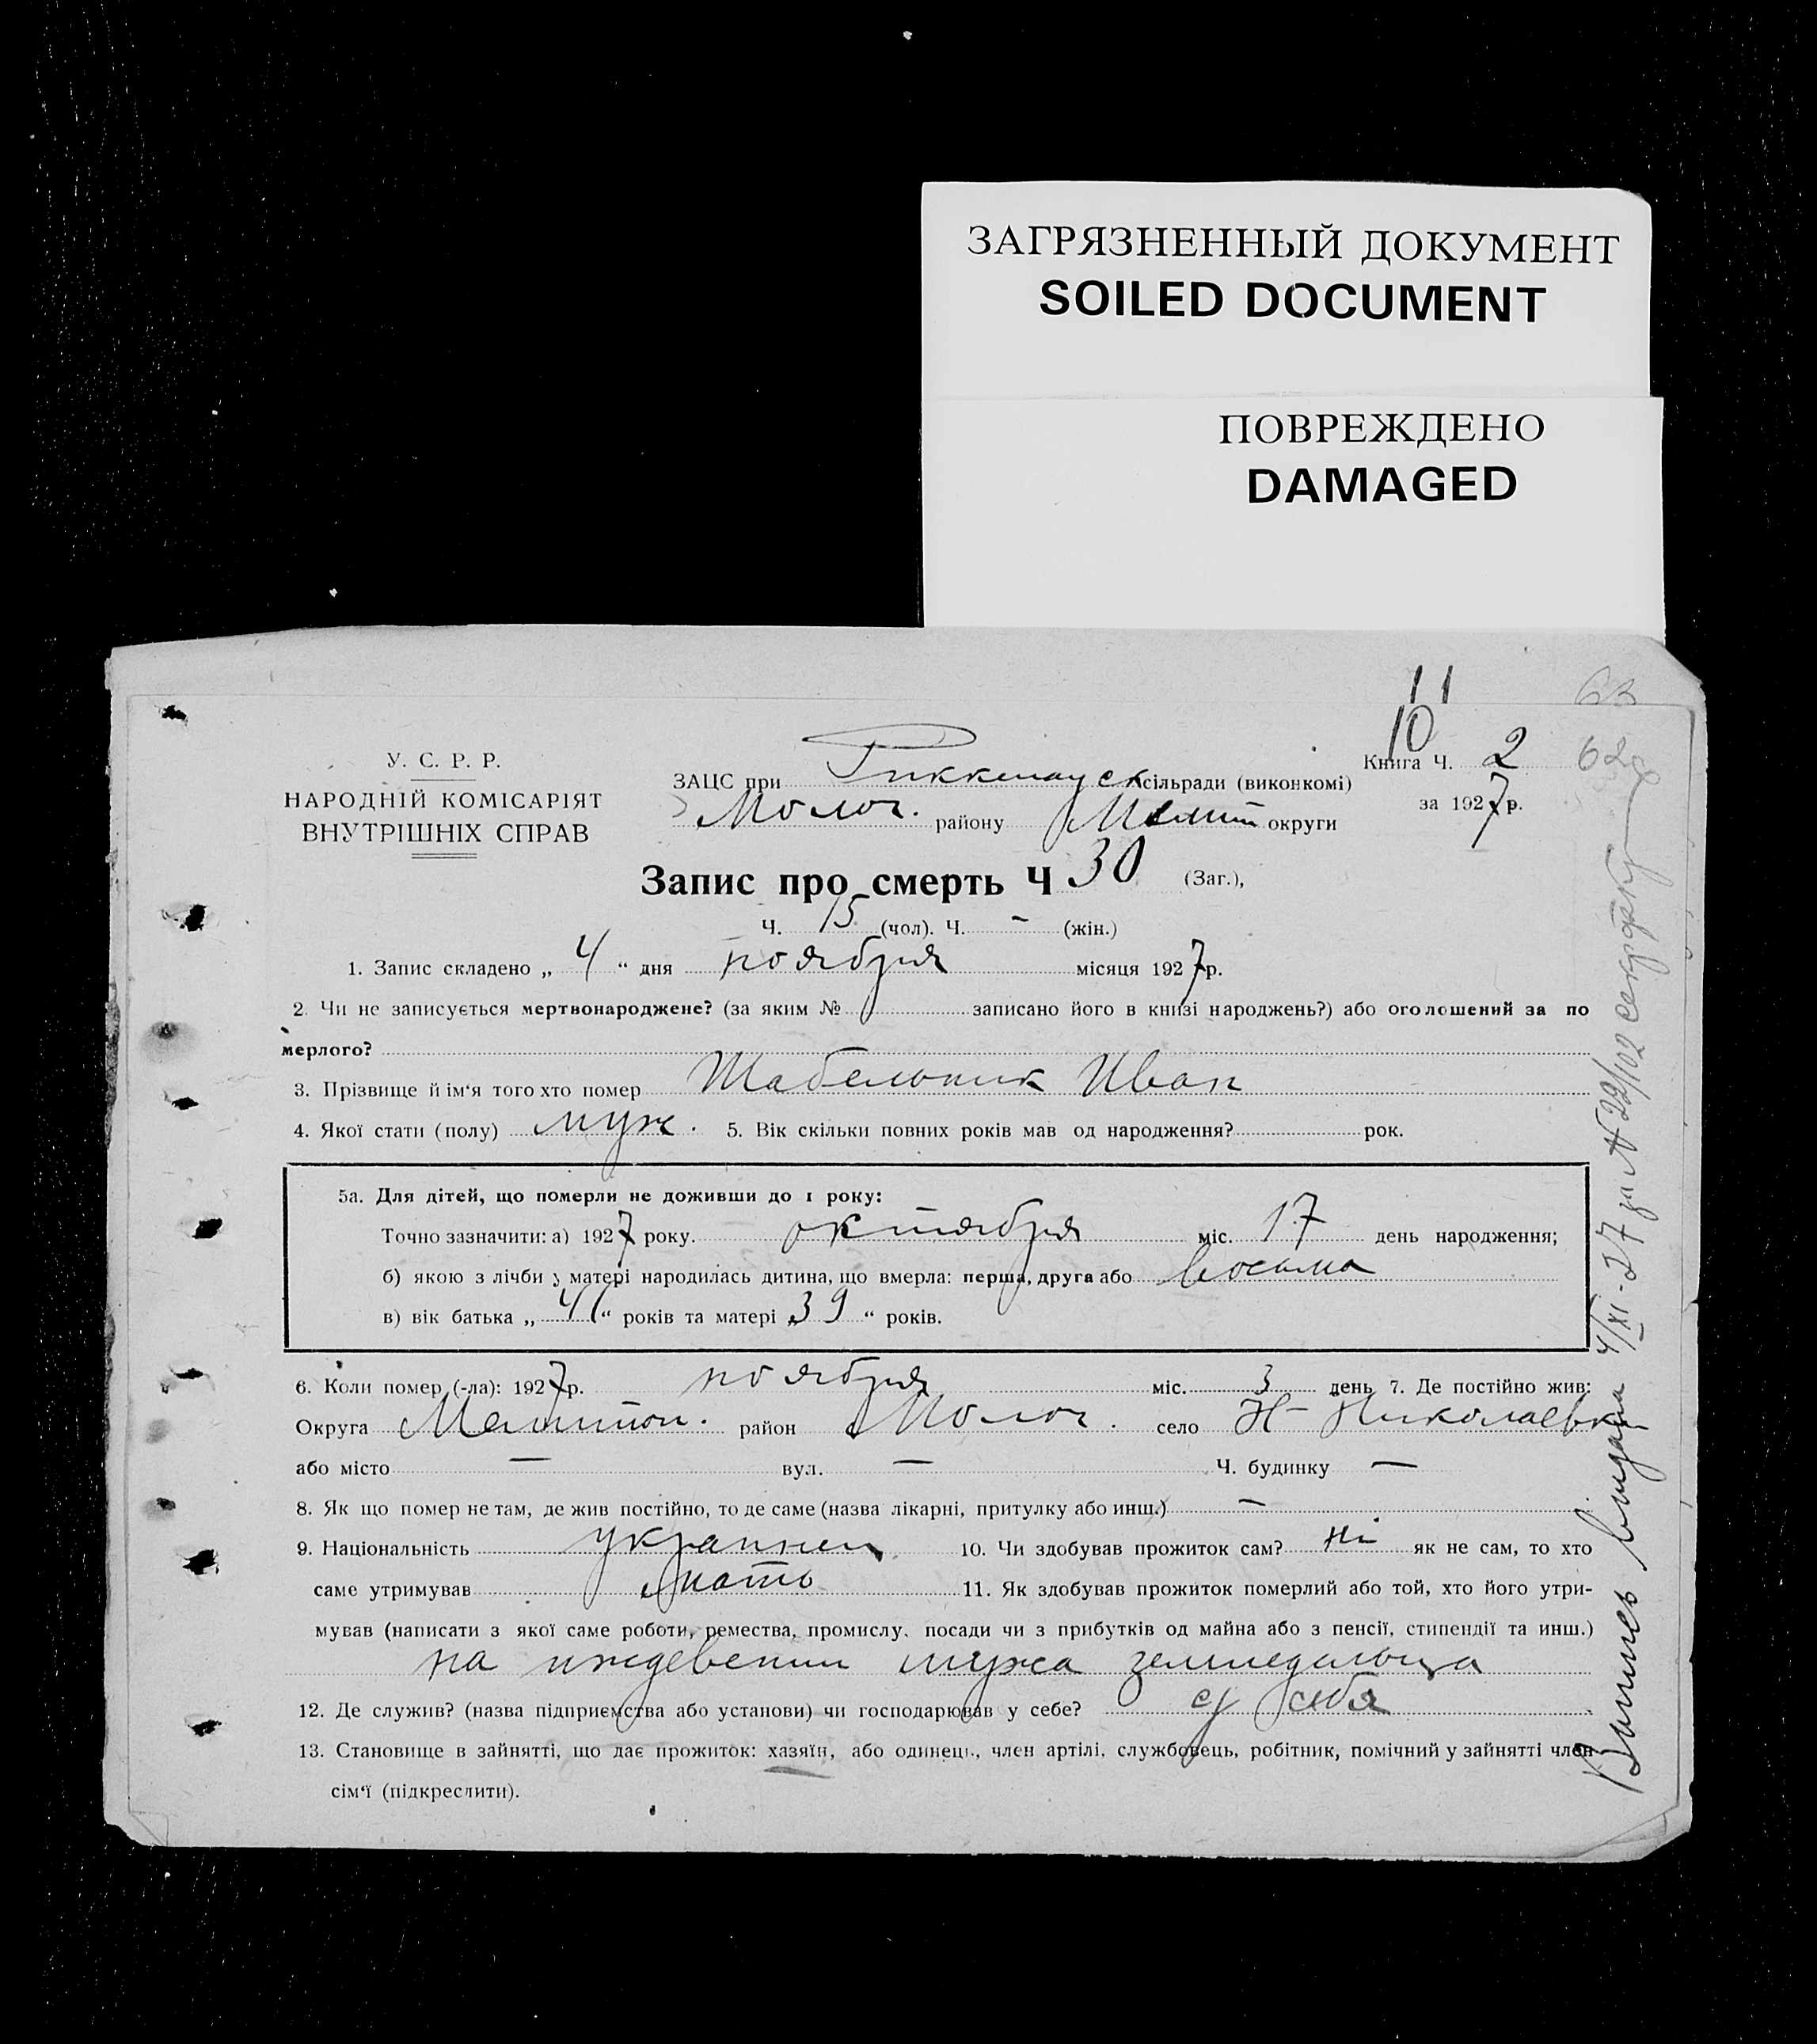 ЗАГРЯЗНЕННЫЙ ДОКУМЕНТ
SOILED DOCUMENT
ПОВРЕЖДЕНО
DAMAGED
11
63
10
62
У. С. Р. Р.
НАРОДНІЙ КОМІСАРІЯТ
ВНУТРІШНІХ СПРАВ
ЗАЦС при Риккенауск сільради (виконкомі)
Молоч. району Мелит округи
Книга Ч. 2
за 1927 р.
Запис про смерть Ч 30 (Заг.),
Ч. 15 (чол). Ч. – (жін.)
1. Запис складено „ 4 “ дня ноября місяця 1927 р.
2. Чи не записується мертвонароджене? (за яким № записано його в книзі народжень?) або оголошений за по
мерлого?
3. Прізвище й ім'я того хто помер Шабельник Иван
4. Якої стати (полу) муж. 5. Вік скільки повних років мав од народження? рок.
5а. Для дітей, що померли не доживши до 1 року:
Точно зазначити: а) 1927 року. октября міс. 17 день народження;
б) якою з лічби у матері народилась дитина, що вмерла: перша, друга або восьма
в) вік батька „ 41 “ років та матері „ 39 “ років.
6. Коли помер (-ла): 1927 р. ноября міс. 3 день 7. Де постійно жив:
Округа Мелитоп. район Молоч. село Н-Николаевка
або місто — вул. — Ч. будинку —
8. Як що помер не там, де жив постійно, то де саме (назва лікарні, притулку або инш.) —
9. Національність украинец 10. Чи здобував прожиток сам? ні як не сам, то хто
саме утримував мать 11. Як здобував прожиток померлий або той, хто його утри-
мував (написати з якої саме роботи, ремества, промислу, посади чи з прибутків од майна або з пенсії, стипендії та инш.)
на иждевении мужа земледельца
12. Де служив? (назва підприємства або установи) чи господарював у себе? у себя
13. Становище в зайнятті, що дає прожиток: хазяїн, або одинець, член артілі, службовець, робітник, помічний у зайнятті член
сім'ї (підкреслити).
видана 4/XI-27 за № 22/102